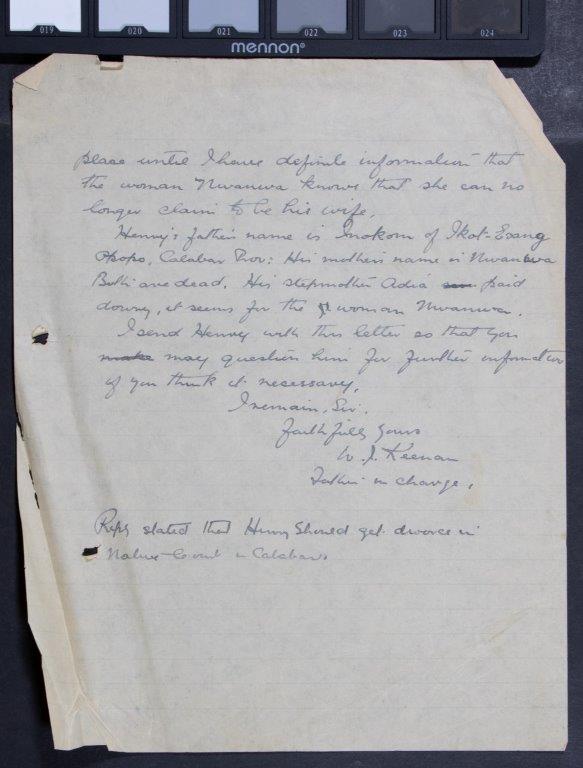 019 020 021 022 023 024
mennon®
place until I have definite information that
the woman Nwanwa knows that she can no
longer claim to be his wife.
Henry's father's name is Inokom of Ikot-Esang
Calabar Prov: His mother's name is Nwanwa
Both are dead. His stepmother Adia paid
dowry, it seems for the woman Nwanwa.
I send Henry with this letter so that you
make may question him for further information
if you think it necessary.
I remain, Sir,
Faithfully Yours
W. J. Keenan
Father in charge.
Reply stated that Henry should get divorce in
Native Court in Calabar